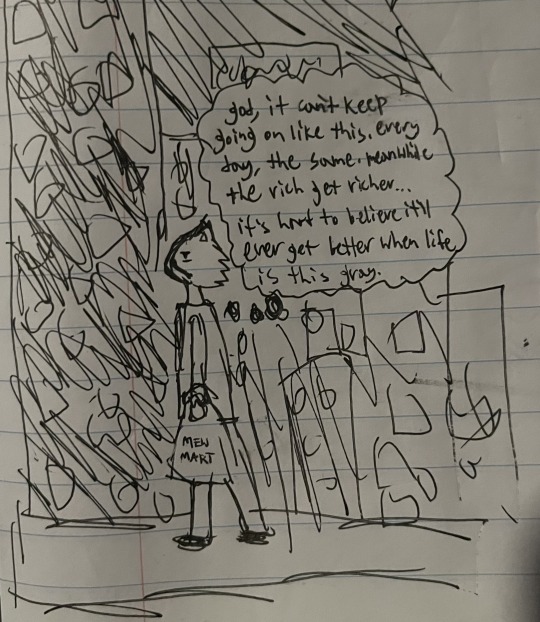 god, it can't keep
going on like this. every
day, the same. meanwhile
the rich get richer...
it's hard to believe it'll
ever get better when life
is this gray.
MEW
MART